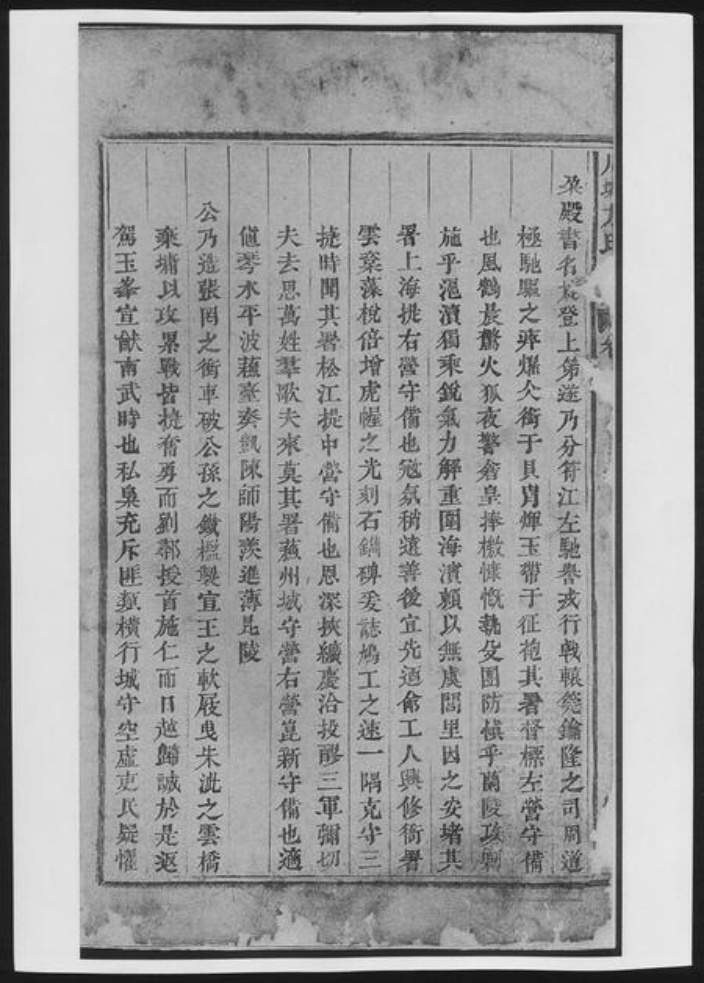 殿書名登上第遂乃分符江左馳譽戎行戟轅筦鑰隆之司周道
極馳驅之弁燦尖銜于貝冑煇玉帶于征袍其署督標左營守備
也風鶴晨驚火狐夜警倉皇捧檄慷慨執殳團防慎乎蘭陵攻剿
施乎滬瀆獨乘銳氣力解重圍海濱賴以無虞閭里因之安堵其
署上海提右營守備也冦氛稍遠善後宜先迺命工人興修衙署
雲棻藻梲倍增虎幄之光刻石鐫碑爰誌鳩工之速一隅克守三
捷時聞其署松江提中營守備也恩深挾纊慶洽投醪三軍彌切
夫去思萬姓羣歌夫來莫其署蘇州城守營右營崑新守備也適
値琴水平波蘓臺奏凱陳師陽羨進薄毘陵
公乃造張罔之衝車破公孫之鐵樞製宣王之軟屐曳朱泚之雲橋
乘墉以攻累戰皆捷奮勇而劉鄩授首施仁而日越歸誠於是返
駕玉峯宣猷南武時也私梟充斥匪類橫行城守空虛吏民疑懼